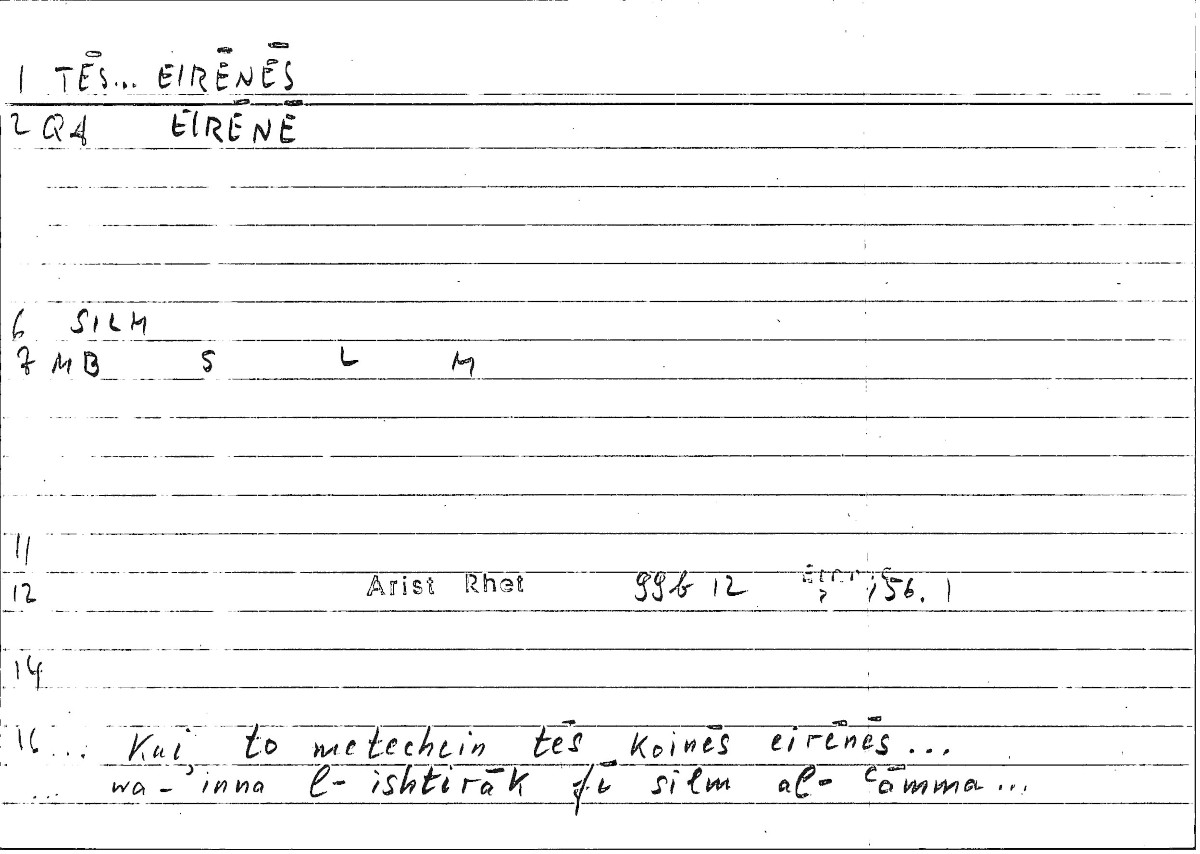 1 TĒS... EIRĒNĒS
2 QA EIRĒNĒ
6 SILM
7 MB S L M
11
12 Arist Rhet 99b 12 156. 1
14
16 ... Kai to metechein tēs koinēs eirēnēs...
... wa-'inna l-ishtirāk fī silm al-ʿāmma...